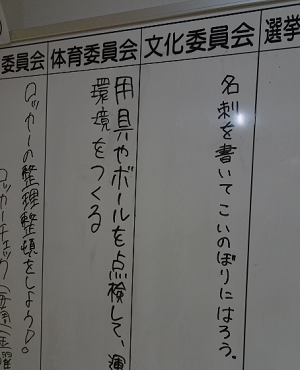 選挙
文化委員会
名刺を書いてこいのぼりにはろう。
体育委員会
用具やボールを点検して、運
環境をつくる
委員会
ロッカーの整理整頓をしよう。
ロッカーチェック